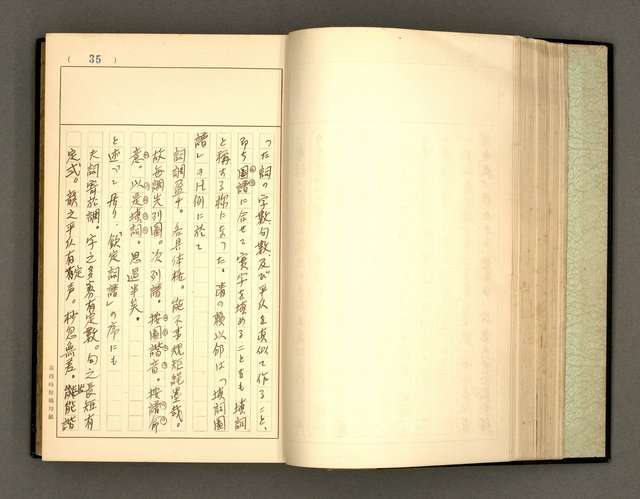 ( 35 )
つた詞の字数句数及び平仄を真似て作ること、
即ち図譜に合せて実字を填めることをも填詞
と稱する様になつた。清の頼以邠は「填詞図
譜」の凡例に於て
詞調盈千。各具体格。能不事規矩繩墨哉。
故毎調先列圖。次列譜。按圖諧音。按譜命
意。以是填詞。思過半矣。
と述べて居り、「欽定詞譜」の序にも
夫詞寄於調。字之多寡有定数。句之長短有
定式。韻之平仄有定声。杪忽無差。始能諧